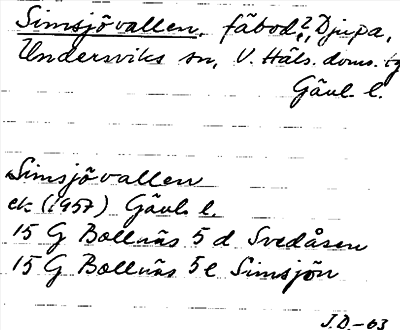 Simsjövallen, fäbod, ?, Djupa,
Undersviks sn, V. Häls. doms. tg
Gävl. l.
Simsjövallen
ek (1957) Gävl. l.
15 G Bollnäs 5 d Svedåsen
15 G Bollnäs 5 e Simsjön
J.D.-63